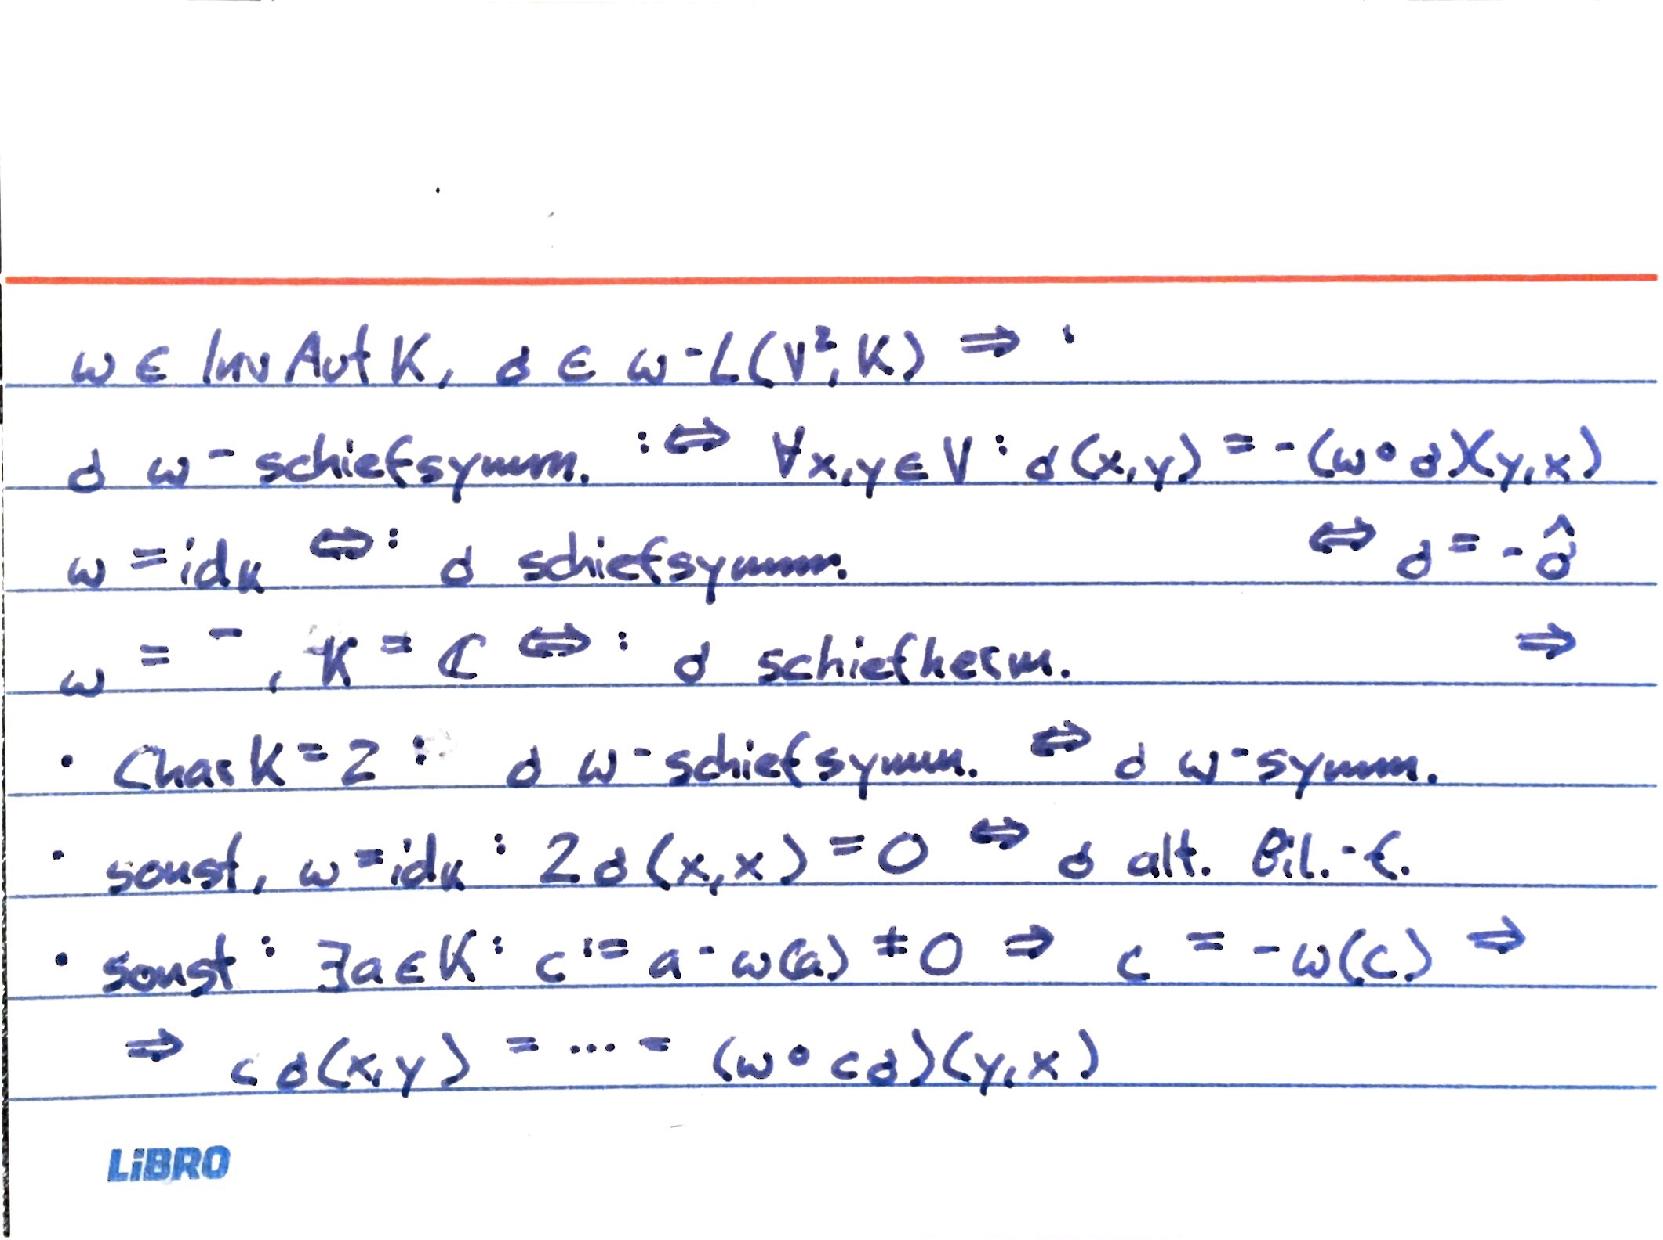 ω ∈ Inv Aut K, σ ∈ ω-L(V², K) ⇒ :
σ ω-schiefsymm. :⇔ ∀x,y∈V: σ(x,y) = -(ω∘σ)(y,x)
ω = id_K ⇔: σ schiefsymm. ⇔ σ = -σ̂
ω = ‾, K = ℂ ⇔: σ schiefherm. ⇒
• Char K = 2: σ ω-schiefsymm. ⇔ σ ω-symm.
• sonst, ω = id_K: 2σ(x,x) = 0 ⇔ σ alt. Bil.-f.
• sonst: ∃a∈K: c := a - ω(a) ≠ 0 ⇒ c = -ω(c) ⇒
⇒ cσ(x,y) = ... = (ω∘cσ)(y,x)
LiBRO